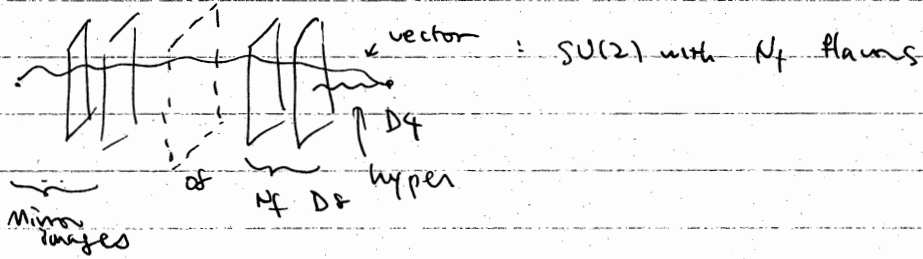 vector : SU(2) with Nf flavors
D4
hyper
O8
Nf D8
Mirror
images